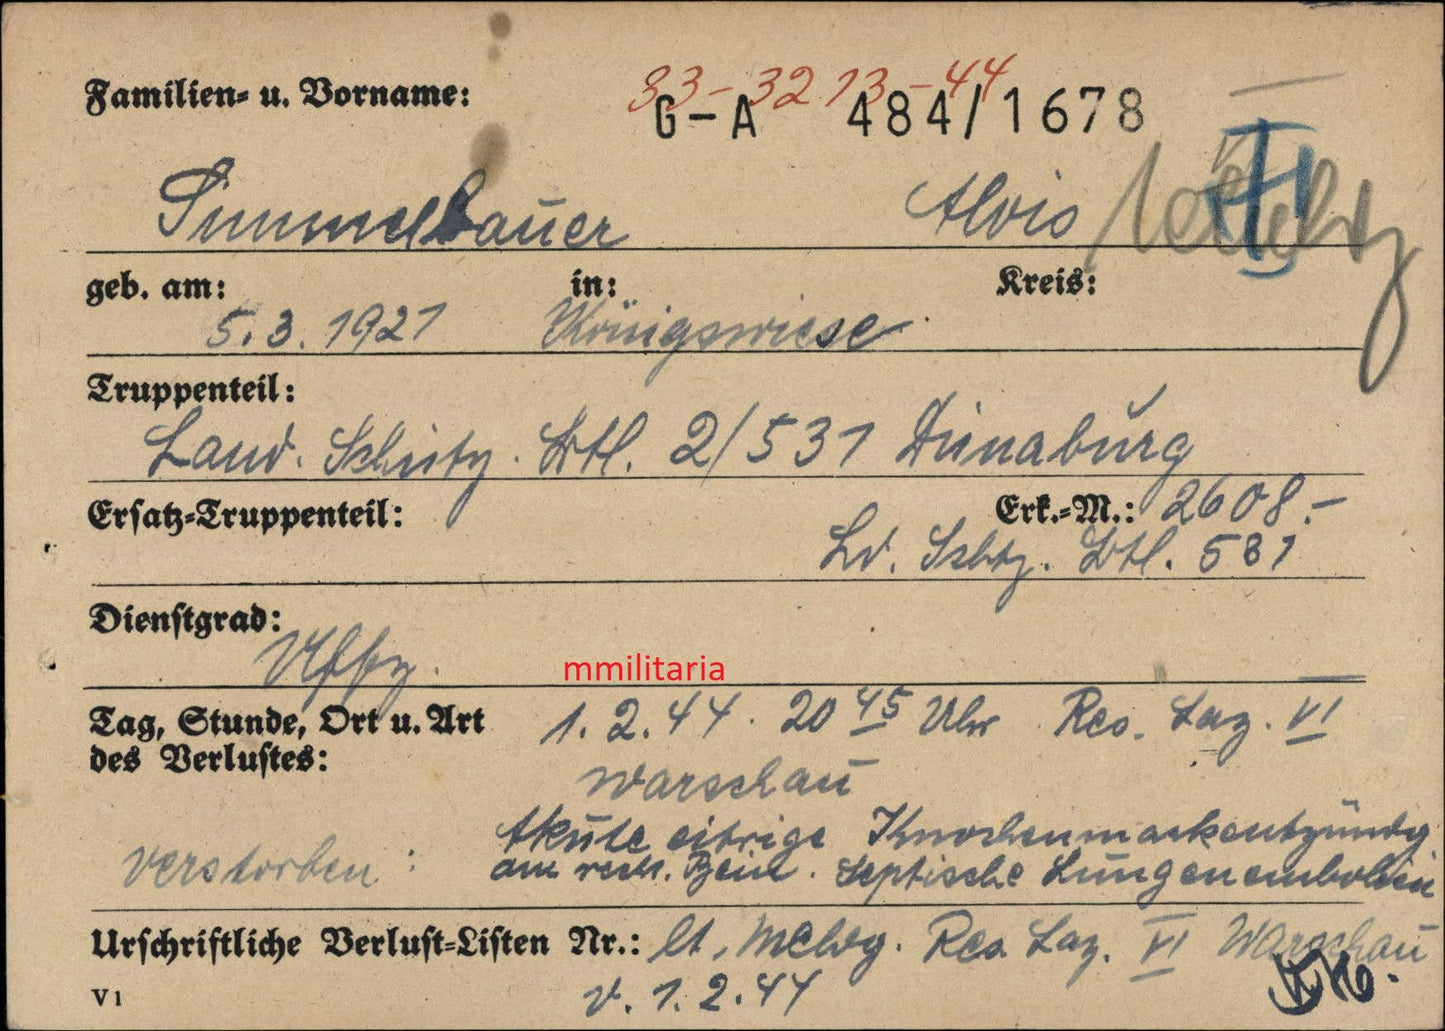 Familien- u. Vorname:
33-32 13-44
G-A 484/1678
Simmelbauer Alois
II
geb. am: in: Kreis:
5.3.1921 Königswiese
Truppenteil:
Land. Schütz. Btl. 2/531 Dünaburg
Ersatz-Truppenteil: Erk.-M.: 2608.-
Ld. Schtz. Btl. 531
Dienstgrad:
Uffz.
mmilitaria
Tag, Stunde, Ort u. Art 1.2.44. 20 45 Uhr Res. Laz. VI
des Verlustes: Warschau
Akute eitrige Knochenmarkentzündg.
verstorben: am rech. Bein. Septische Lungenembolien
Urschriftliche Verlust-Listen Nr.: lt. Meldg. Res. Laz. VI Warschau
V1 v. 1.2.44